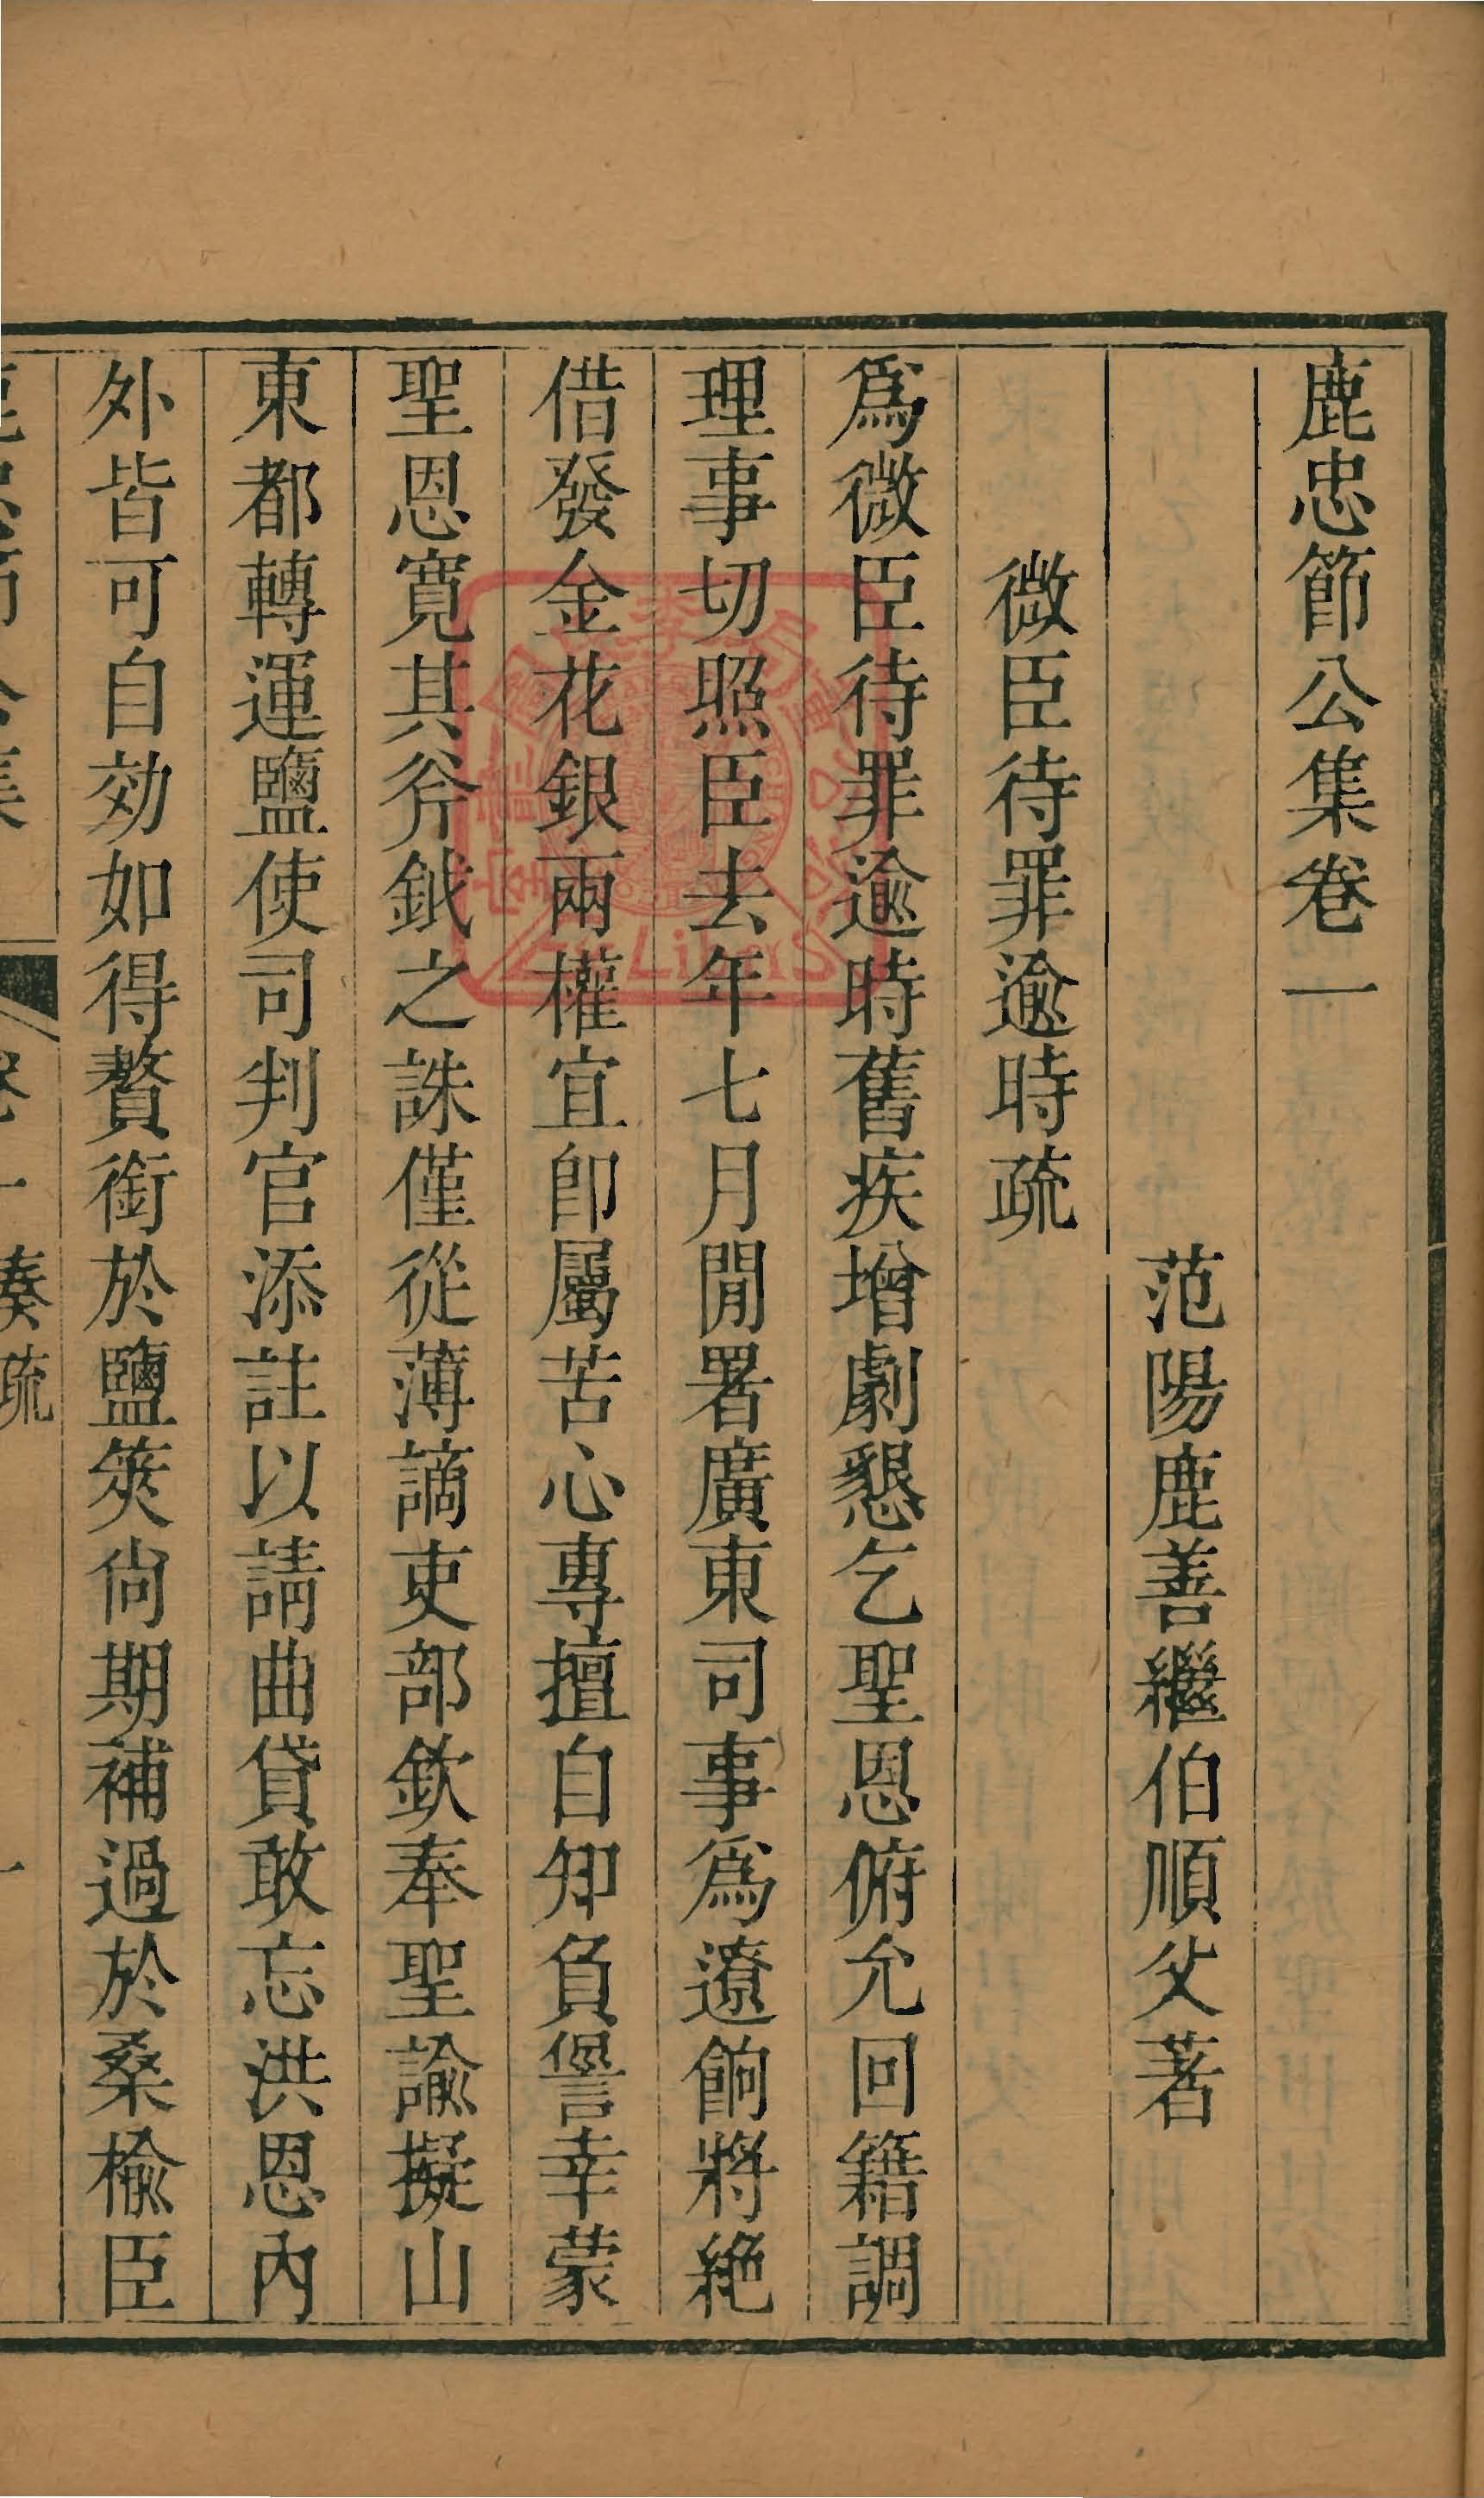 鹿忠節公集卷一
范陽鹿善繼伯順父著
微臣待罪逾時疏
爲微臣待罪逾時舊疾增劇懇乞聖恩俯允回籍調
理事切照臣去年七月閒署廣東司事爲遼餉將絶
借發金花銀兩權宜卽屬苦心專擅自知負諐幸蒙
聖恩寛其斧鉞之誅僅從薄謫吏部欽奉聖諭擬山
東都轉運鹽使司判官添註以請曲貸敢忘洪恩內
外皆可自効如得贅銜於鹽筴尙期補過於桑楡臣
鹿忠節公集 卷一 奏疏 一